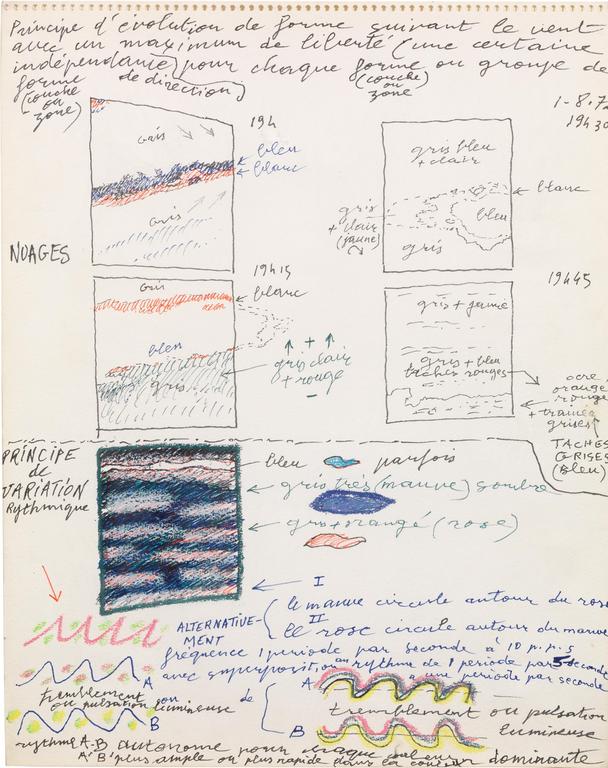 Principe d'évolution de forme suivant le vent
avec un maximum de liberté (une certaine
indépendance) pour chaque forme ou groupe de
forme de direction) (couche
(couche ou
ou zone)
zone)
1-8-7
19h30
19h
gris
bleu
blanc
gris
gris bleu
+ clair
blanc
bleu
gris
+ clair
(jaune)
gris
NUAGES
19h15
gris
blanc
bleu
gris
+
gris clair
+ rouge
-
19h45
gris + jaune
gris + bleu
taches rouges
ocre
orange
rouge
+ trainées
grises
TACHES
GRISES
(bleu)
PRINCIPE
de
VARIATION
Rythmique
bleu parfois
gris très (mauve) sombre
gris + orangé (rose)
I
le mauve circule autour du rose
II
le rose circule autour du mauve
ALTERNATIVE-
MENT
fréquence 1 période par seconde à 10 p.p.s
avec superposition au rythme de 1 période par 5 seconde
à une période par seconde
A
tremblement
ou pulsation lumineuse
B
ou de
A
tremblement ou pulsation
lumineuse
B
rythme A-B autonome pour chaque
A' B' plus ample ou plus rapide dans la couleur dominante